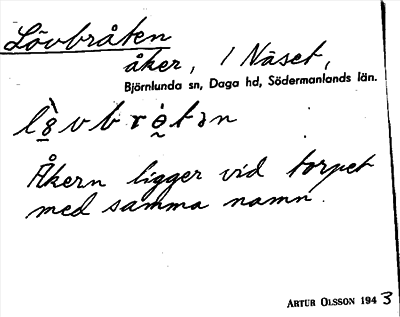 Lövbråten
åker, / Näset,
Björnlunda sn, Daga hd, Södermanlands län.
Åkern ligger vid torpet
med samma namn.
ARTUR OLSSON 1943